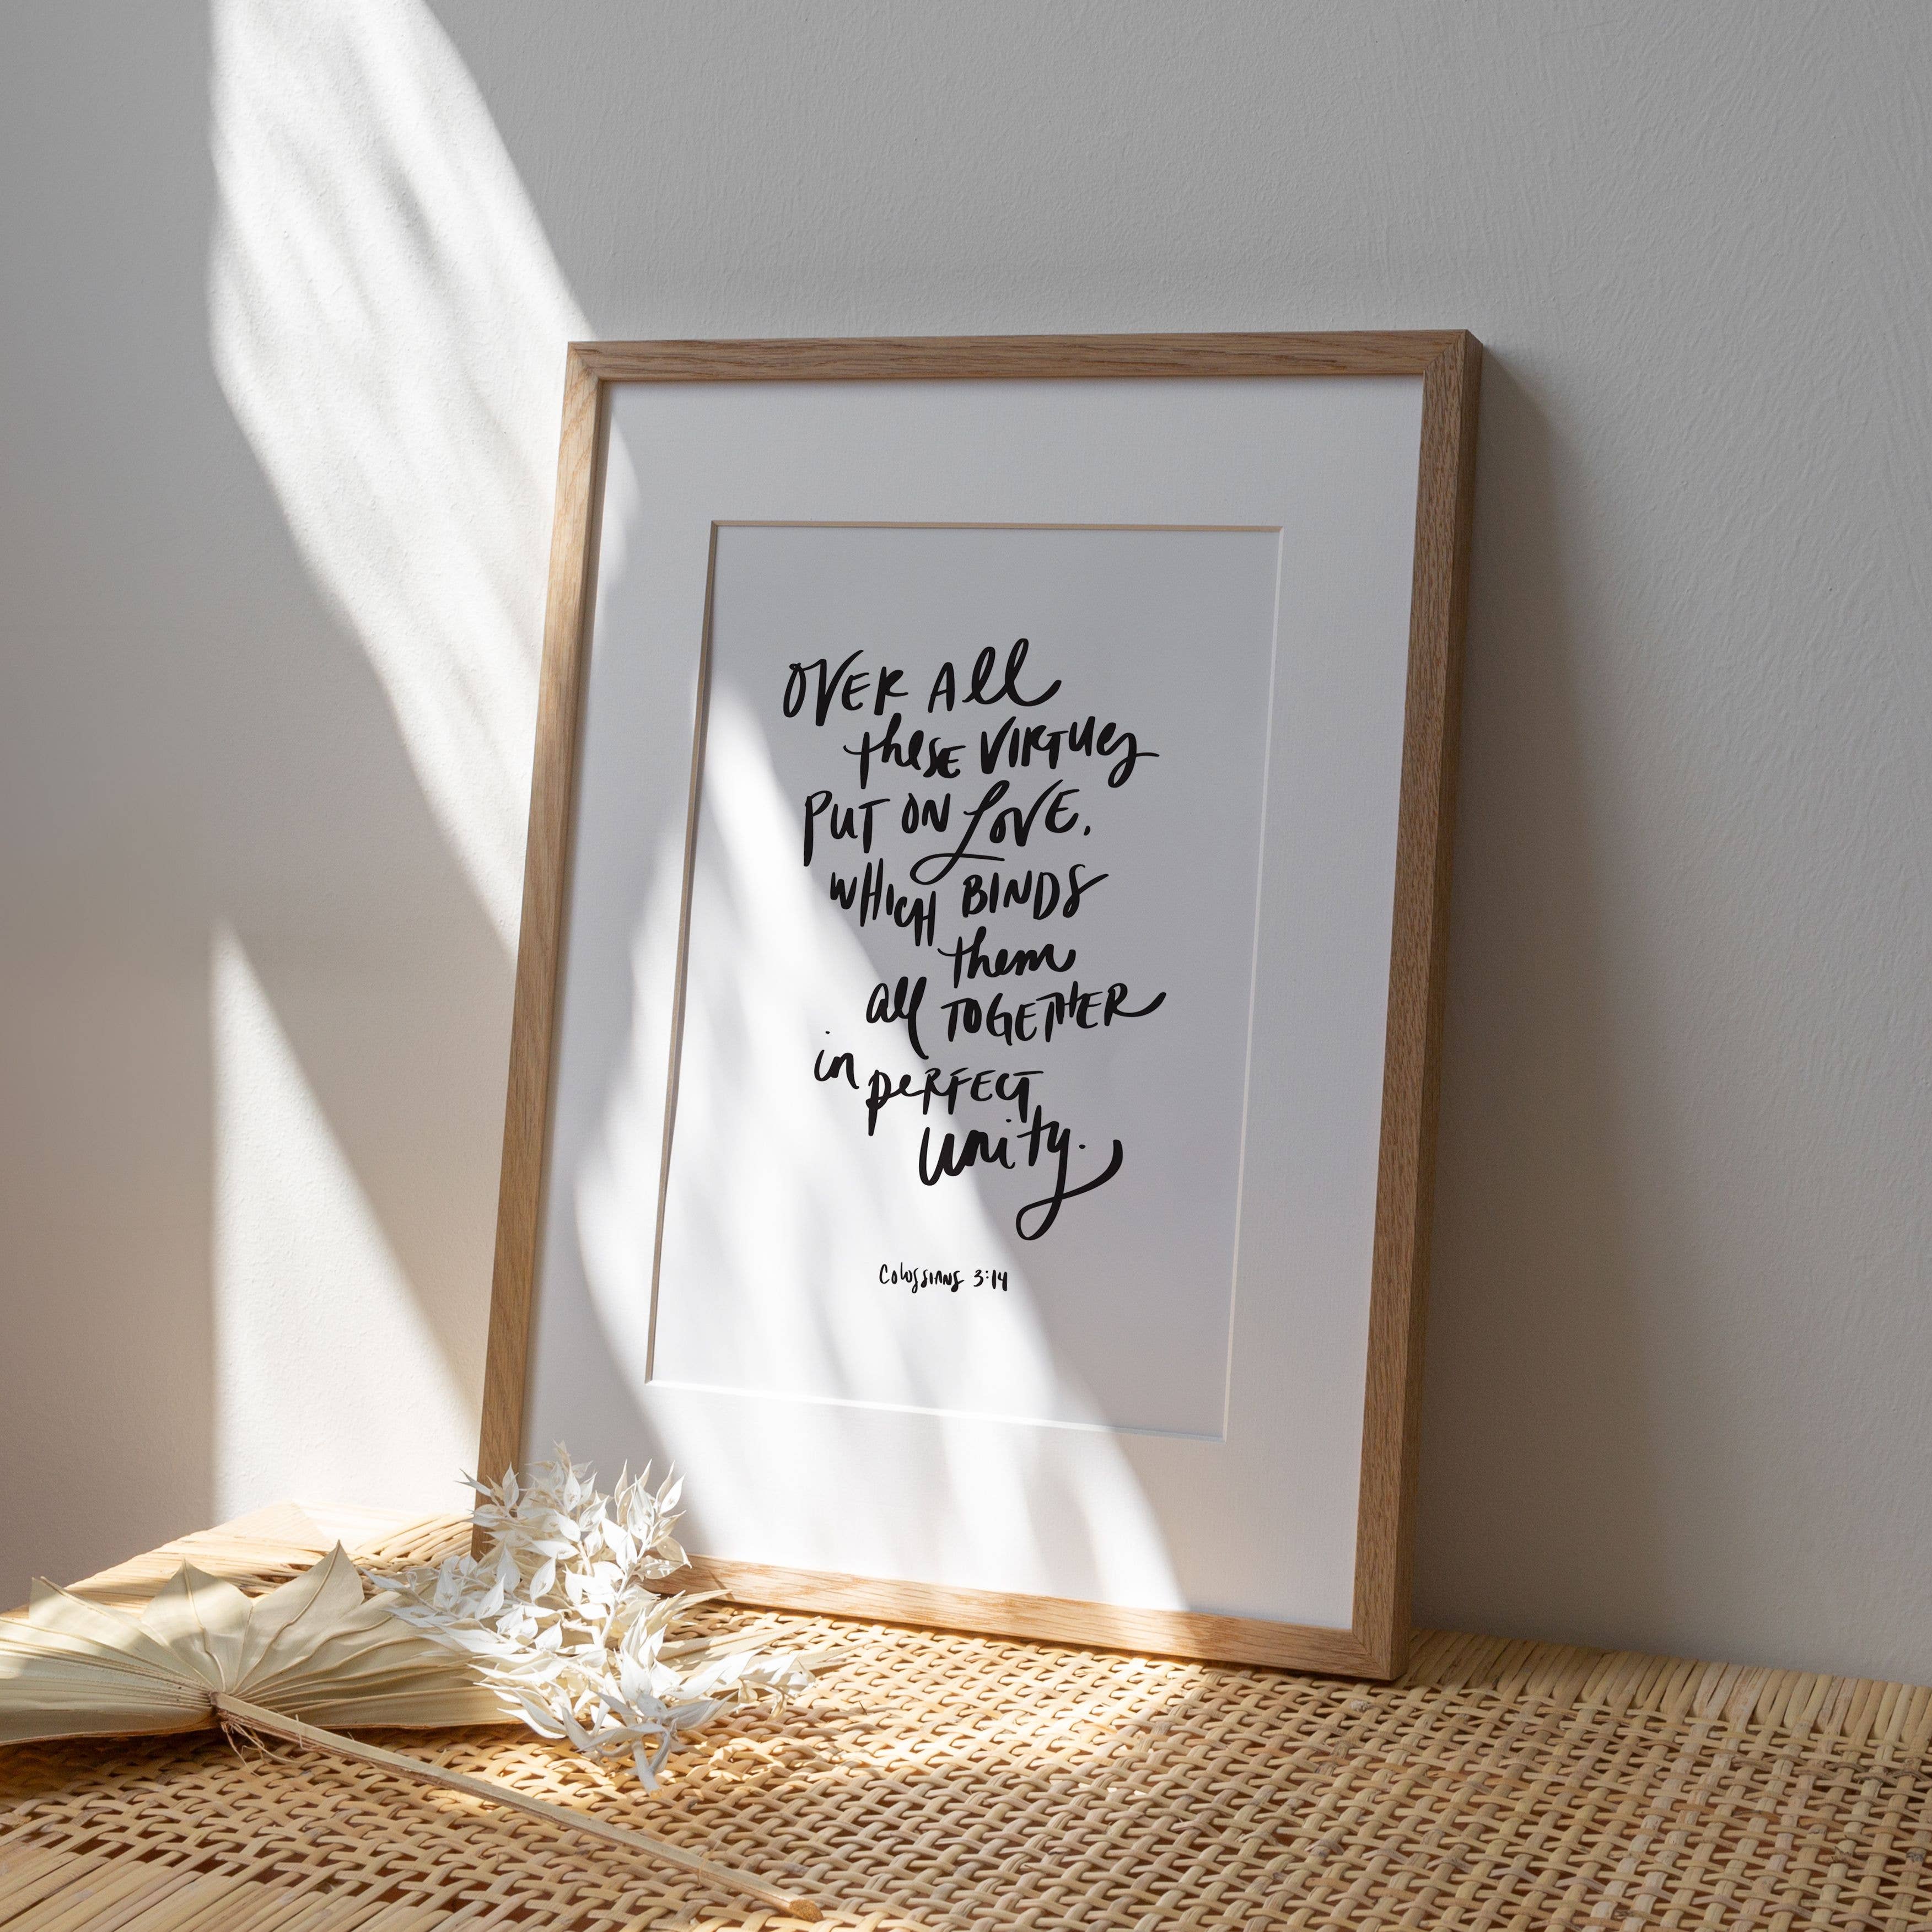 OVER All
these VIRTUES
PUT ON LOVE,
WHICH BINDS
them
all TOGETHER
in perFECT
unity.
Colossians 3:14